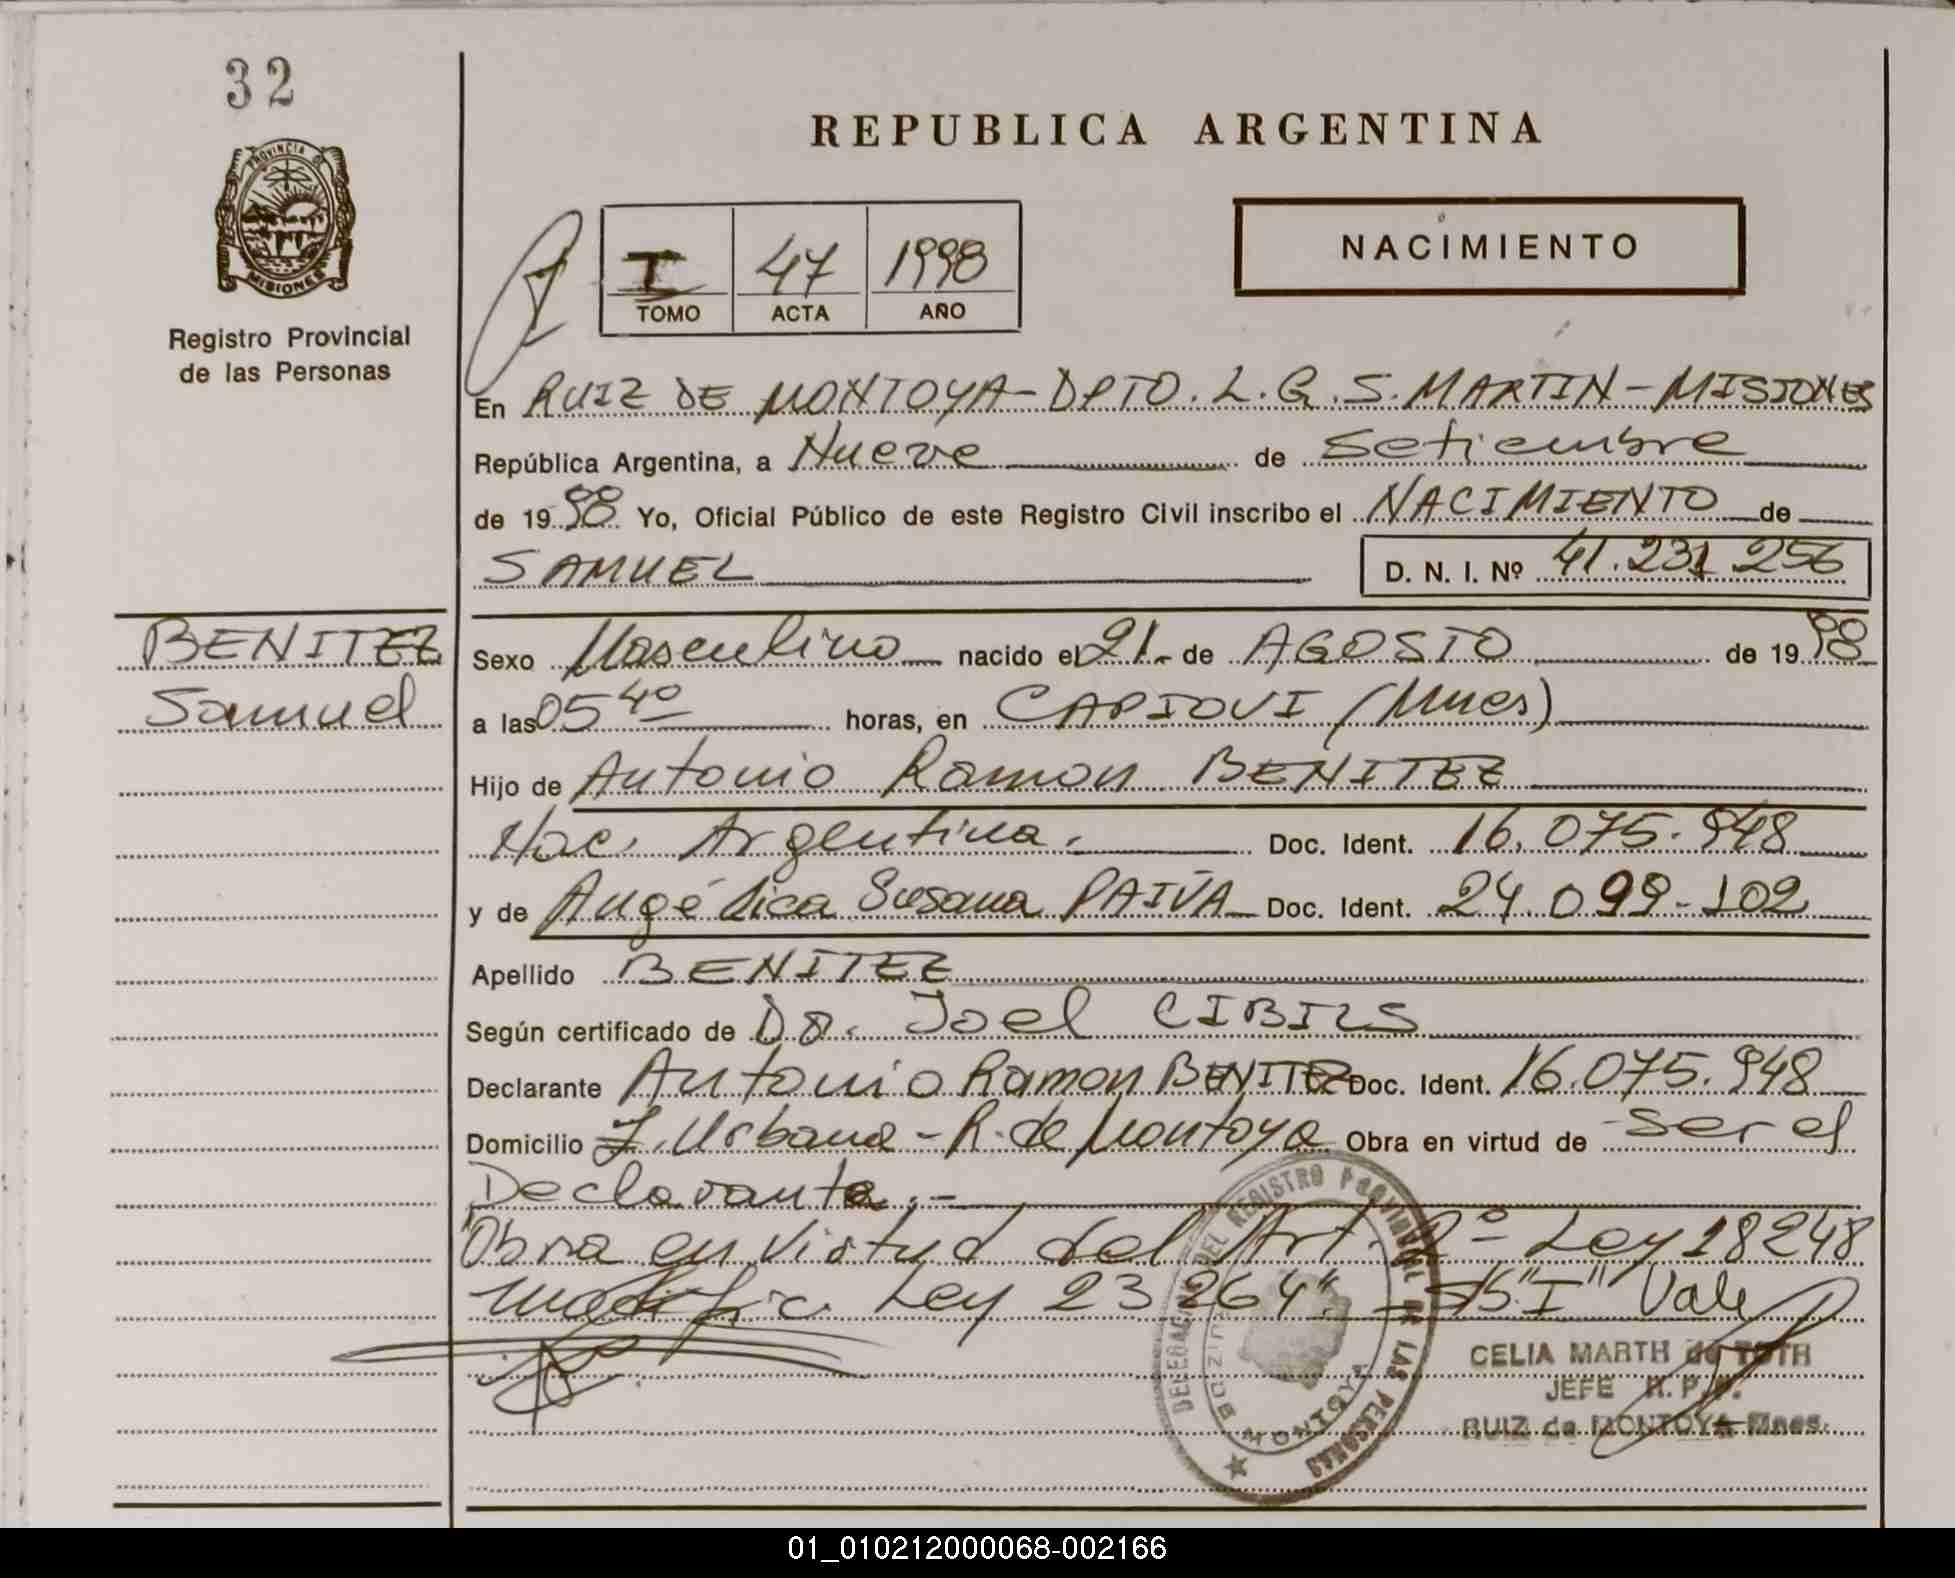 32
PROVINCIA DE
MISIONES
Registro Provincial
de las Personas
REPUBLICA ARGENTINA
I 47 1998
TOMO ACTA AÑO
NACIMIENTO
En RUIZ DE MONTOYA-DPTO. L.G.S. MARTIN-MISIONES
República Argentina, a Nueve de Setiembre
de 1998 Yo, Oficial Público de este Registro Civil inscribo el NACIMIENTO de
SAMUEL D. N. I. Nº 41.231 256
BENITEZ
Samuel
Sexo Masculino nacido el 21. de AGOSTO de 1998
a las 05 40 horas, en CAPIOVI (Mnes)
Hijo de Antonio Ramon BENITEZ
Nac. Argentina. Doc. Ident. 16.075.948
y de Angélica Susana PAIVA Doc. Ident. 24.099.102
Apellido BENITEZ
Según certificado de Dr. Joel CIBILS
Declarante Antonio Ramon BENITEZ Doc. Ident. 16.075.948
Domicilio Z. Urbana - R. de Montoya Obra en virtud de ser el
Declarante.-
Obra en virtud del Art. 2º Ley 18248
modific. Ley 23264". "I" Vale
DELEGACION DEL REGISTRO PROVINCIAL DE LAS PERSONAS
RUIZ DE MONTOYA
CELIA MARTH de TOTH
JEFE R. P. P.
RUIZ de MONTOYA Mnes.
01_010212000068-002166